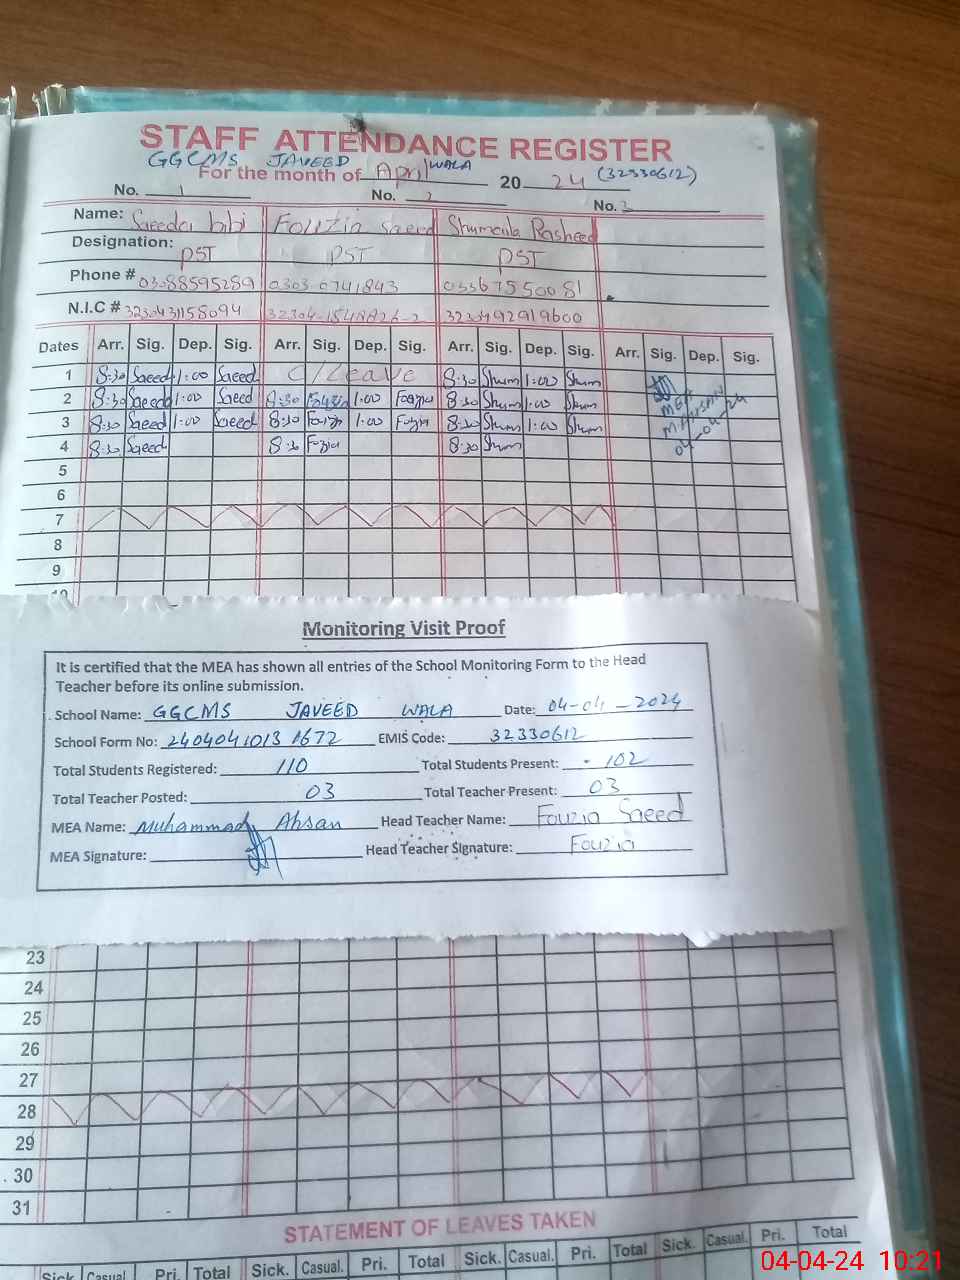 STAFF ATTENDANCE REGISTER
GGCMS JAVEED WALA (32330612)
For the month of April 20 24
No. 1 No. 2 No. 3
Name: Saeeda bibi Fouzia Saeed Shumaila Rasheed
Designation: PST PST PST
Phone # 03088595289 0303 0741843 03367550081
N.I.C # 3230431158094 3230492919600
Dates Arr. Sig. Dep. Sig. Arr. Sig. Dep. Sig. Arr. Sig. Dep. Sig. Arr. Sig. Dep. Sig.
1 8:30 Saeed 1:00 Saeed C/Leave 8:30 Shum 1:00 Shum
2 8:30 Saeed 1:00 Saeed 8:30 Fouzia 1:00 Fouzia 8:30 Shum 1:00 Shum MEA
3 8:30 Saeed 1:00 Saeed 8:30 Fouzia 1:00 Fouzia 8:30 Shum 1:00 Shum M.AHSAN
4 8:30 Saeed 8:30 Fozia 8:30 Shum 04-04-24
5
6
7
8
9
10
Monitoring Visit Proof
It is certified that the MEA has shown all entries of the School Monitoring Form to the Head
Teacher before its online submission.
School Name: GGCMS JAVEED WALA Date: 04-04-2024
School Form No: 24040410131672 EMIS Code: 32330612
Total Students Registered: 110 Total Students Present: 102
Total Teacher Posted: 03 Total Teacher Present: 03
MEA Name: Muhammad Ahsan Head Teacher Name: Fouzia Saeed
MEA Signature: Head Teacher Signature: Fouzia
23
24
25
26
27
28
29
30
31
STATEMENT OF LEAVES TAKEN
Sick. Casual. Pri. Total Sick. Casual. Pri. Total Sick. Casual. Pri. Total Sick. Casual. Pri. Total
04-04-24 10:21